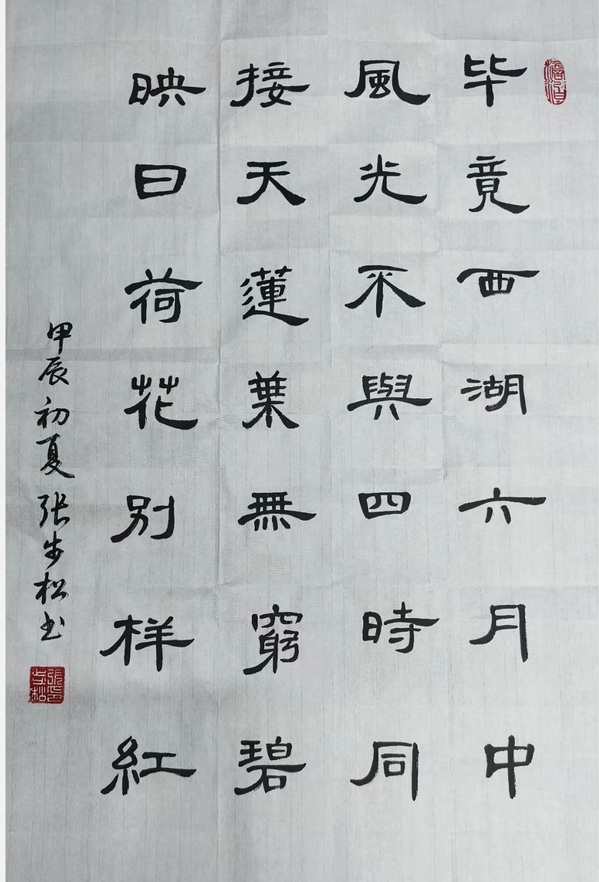 毕竟西湖六月中
風光不與四時同
接天蓮葉無窮碧
映日荷花别样紅
甲辰初夏张步松书